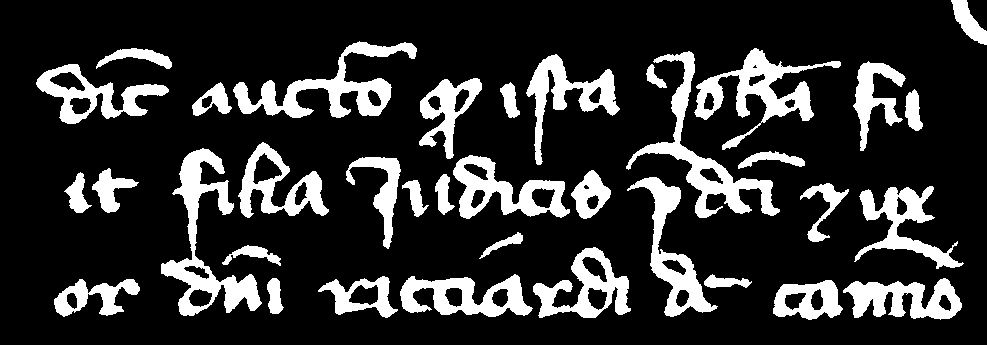 dic̄ auctō ꝙ ista Joh̄a fu
it filia Judicis p̄dc̄i ⁊ ux
or dn̄i ricciardi d̄ cam̄ino